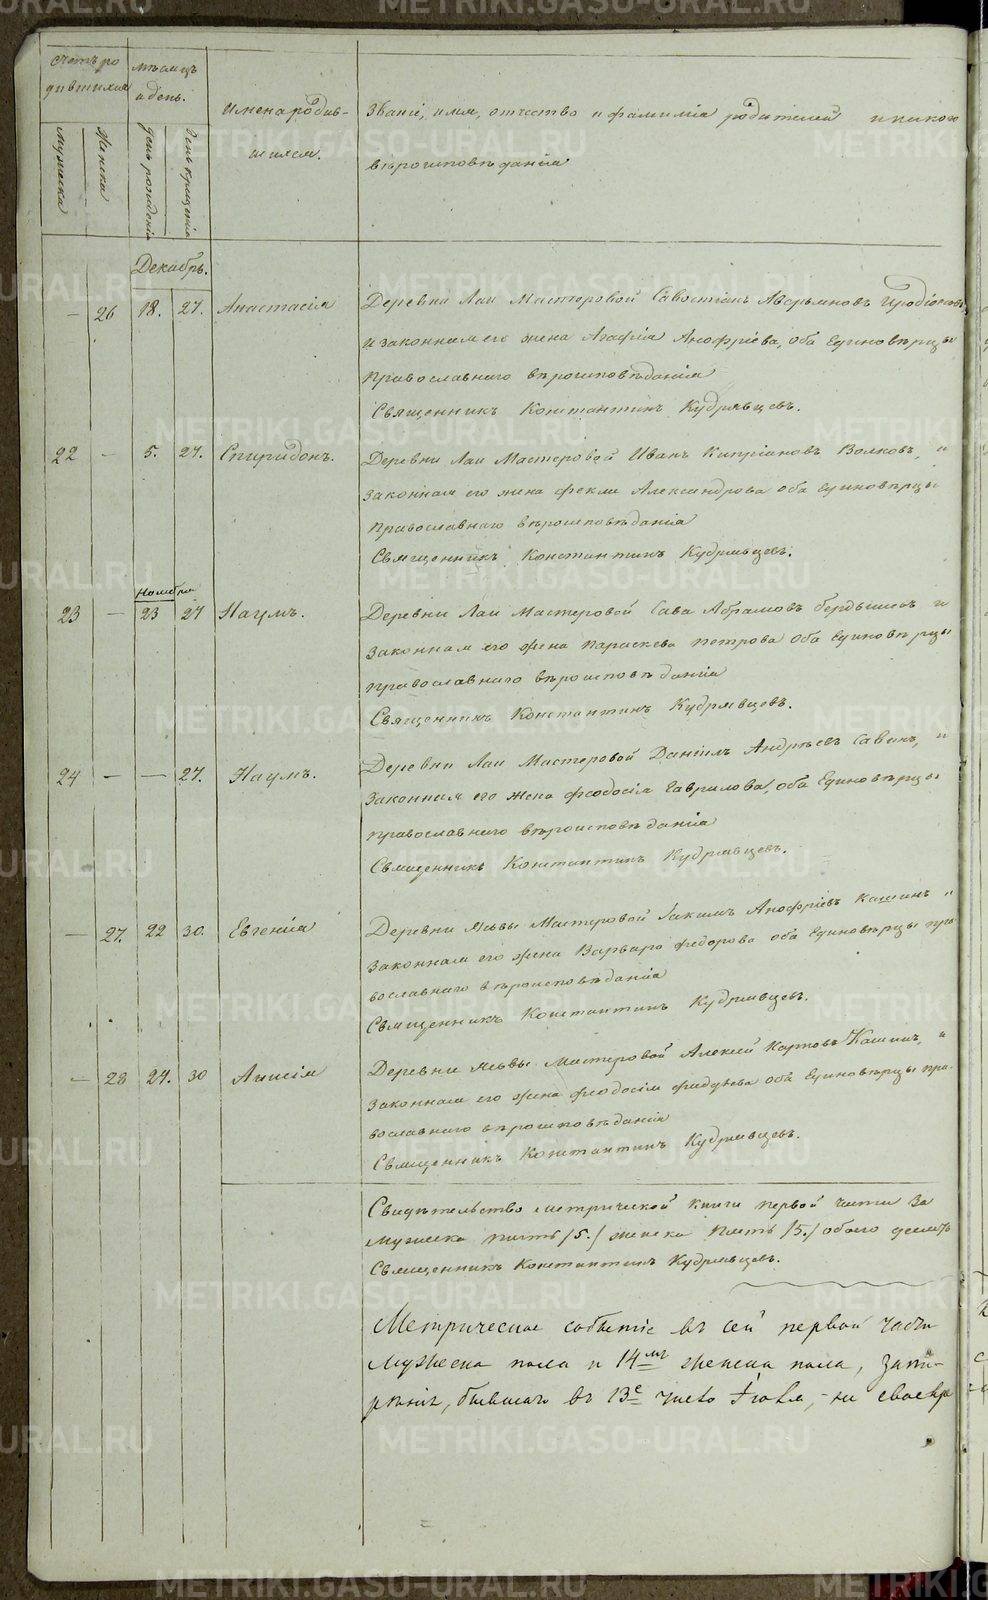 Счетъ ро
дившихся
мѣсяцъ
и день.
Имена родив-
шихся.
Званіе, имя, отчество и фамилія родителей и какого
вѣроисповѣданія
Мужеска
Женска
день рожденія
день крещенія
Декабрь.
— 26 18. 27. Анастасія Деревни Лаи Мастеровой Савостіанъ Аверьяновъ
и законная его жена Агафія Анофріева, оба Единовѣрцы
православнаго вѣроисповѣданія
Священникъ Константинъ Кудрявцевъ.
22 — 5. 27. Спиридонъ. Деревни Лаи Мастеровой Иванъ Кипріановъ Волковъ, и
законная его жена Фекла Александрова оба единовѣрцы
православнаго вѣроисповѣданія
Священникъ Константинъ Кудрявцевъ.
Ноября
23 — 23 27 Наумъ. Деревни Лаи Мастеровой Сава Абрамовъ и
законная его жена Параскева Петрова оба Единовѣрцы
православнаго вѣроисповѣданія
Священникъ Константинъ Кудрявцевъ.
24 — — 27. Наумъ. Деревни Лаи Мастеровой Даніилъ Андреевъ Савинъ, и
законная его жена Феодосія Гаврилова, оба Единовѣрцы
православнаго вѣроисповѣданія
Священникъ Константинъ Кудрявцевъ.
— 27. 22 30. Евгенія Деревни Мастеровой Іакимъ Анофріевъ Кашинъ и
законная его жена Варвара Федорова оба Единовѣрцы пра
вославнаго вѣроисповѣданія
Священникъ Константинъ Кудрявцевъ.
— 28 24. 30 Анисія Деревни Мастеровой Алексей Карповъ Кашинъ, и
законная его жена Феодосія оба Единовѣрцы пра-
вославнаго вѣроисповѣданія
Священникъ Константинъ Кудрявцевъ.
Свидѣтельство метрической книги первой части за
мужеска пять /5./ женска пять /5./ обоего десять
Священникъ Константинъ Кудрявцевъ.
Метрическое событіе въ сей первой части
мужеска пола и 14мъ женска пола,
бывшаго въ 13е число
METRIKI.GASO-URAL.RU